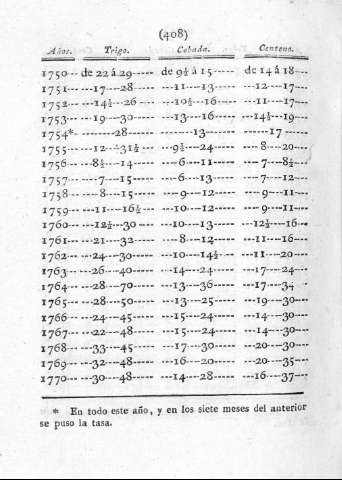 (408)
Años. Trigo. Cebada. Centeno.
1750-- de 22 á 29----- de 9½ á 15----- de 14 á 18---
1751-----17---28---------11---13---------12---17----
1752-----14½--26--------10½---16---------11---17----
1753-----19---30---------13---16---------14½--19----
1754*-------28-------------13-------------17 -----
1755-----12--31½--------9½---24---------8---20----
1756-----8½---14---------6---11---------7---8½---
1757------7---15---------6---13---------7---12----
1758------8---15---------9---12---------9---11----
1759-----11---16½-------10---12---------9---11----
1760-----12½--30--------10---13--------12½---16---
1761-----21---32---------8---12---------11---16----
1762-----24---30--------10---14½--------11---20----
1763-----26---40--------14---24---------17---24----
1764-----28---70--------13---36---------17---34----
1765-----28---50--------13---25---------19---30----
1766-----24---45--------15---24---------14---30----
1767-----22---48--------15---24---------14---30----
1768-----33---45--------17---30---------20---30----
1769-----32---48--------16---20---------20---35----
1770-----30---48--------14---28---------16---37----
* En todo este año, y en los siete meses del anterior
se puso la tasa.